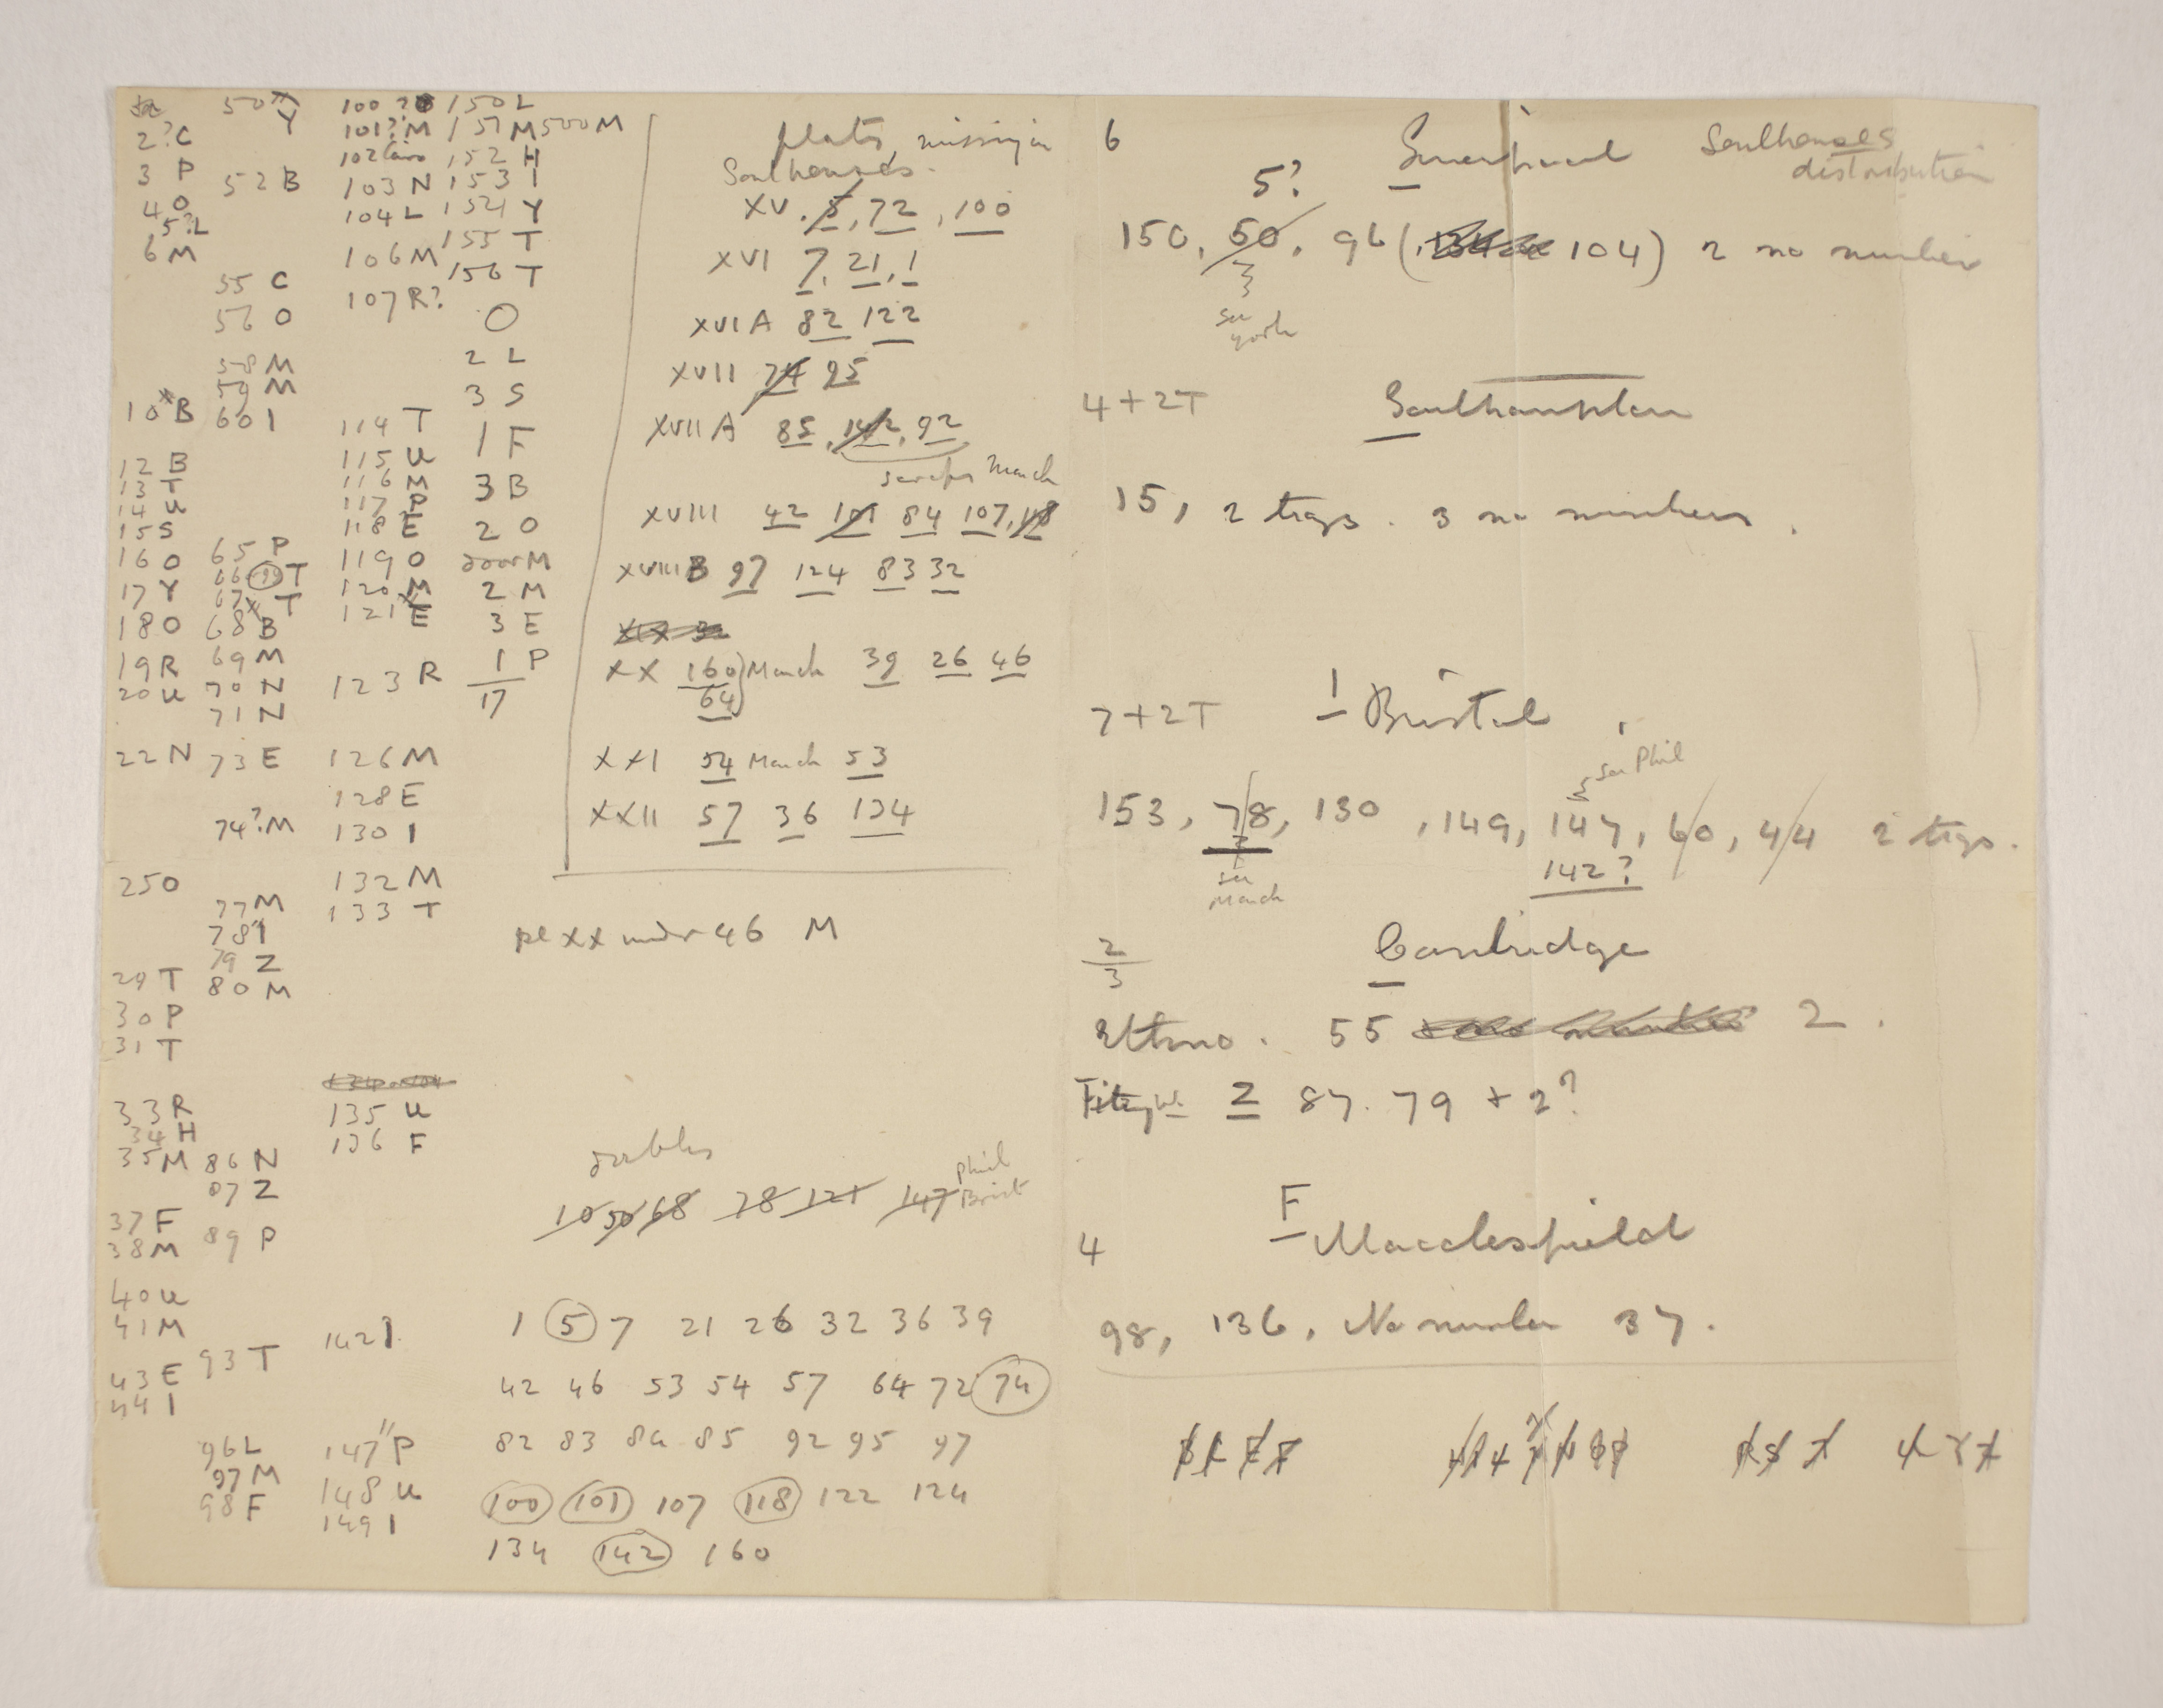 2?C
3 P
4 O
5?L
6 M
10 B
12 B
13 T
14 U
15 S
16 O
17 Y
18 O
19 R
20 U
22 N
250
29 T
30 P
31 T
33 R
34 H
35 M
37 F
38 M
40 U
41 M
43 E
44 I
50 Y
52 B
55 C
56 O
58 M
59 M
60 I
65 P
66 T
67 T
68 B
69 M
70 N
71 N
73 E
74?M
77 M
78 I
79 Z
80 M
86 N
87 Z
89 P
93 T
96 L
97 M
98 F
100 ?
101?M
102 Cairo
103 N
104 L
106 M
107 R?
114 T
115 U
116 M
117 P
118 E
119 O
120 M
121 E
123 R
126 M
128 E
130 I
132 M
133 T
135 U
136 F
142 I
147 P
148 U
149 I
150 L
151 M 500 M
152 H
153 I
154 Y
155 T
156 T
O
2 L
3 S
1 F
3 B
2 O
door M
2 M
3 E
1 P
17
plates missing in
Soulhouses.
XV. 5, 72, 100
XVI 7, 21, 1
XVI A 82 122
XVII 74 95
XVII A 85, 142, 92
scraps March
XVIII 42 101 84 107, 118
XVIII B 97 124 83 32
XIX 32
XX 160 March 39 26 46
64
XXI 54 March 53
XXII 57 36 134
pl XX under 46 M
doubles
10 50 68 78 121 147 Phil
Brist
1 5 7 21 26 32 36 39
42 46 53 54 57 64 72 74
82 83 84 85 92 95 97
100 101 107 118 122 124
134 142 160
6 Liverpool Soulhouses
distribution
5?
150, 50, 96 ( 104) 2 no number
see
York
4+2T Southampton
15, 2 trays. 3 no numbers.
7+2T I Bristol
see Phil
153, 78, 130, 149, 147, 60, 44 2 trays.
142?
see
March
2 Cambridge
3
Ethno. 55 2.
Fitzw. Z 87. 79 + 2?
F
4 Macclesfield
98, 136, No number 37.